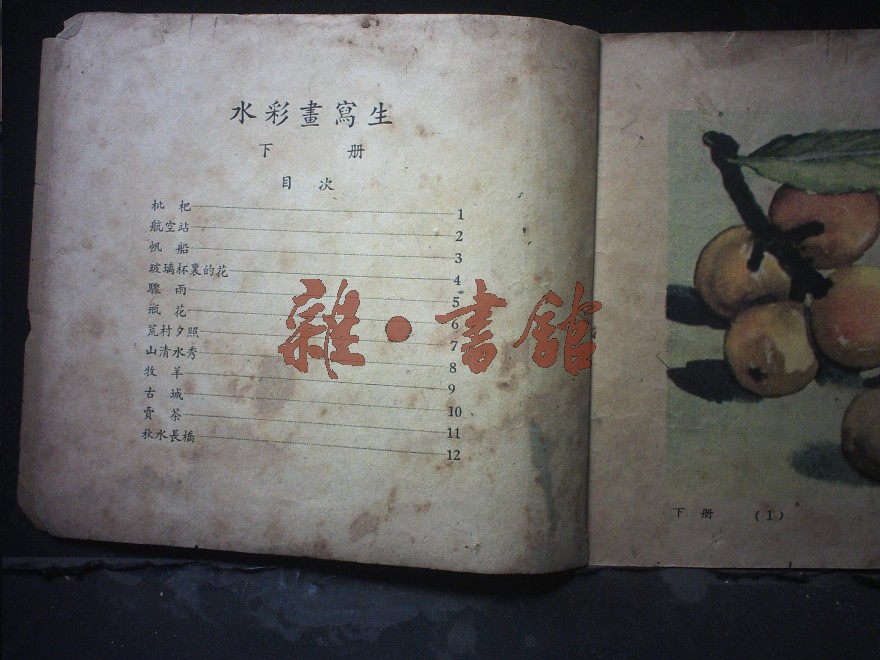 水彩畫寫生
下 册
目 次
枇 杷 1
航空站 2
帆 船 3
玻璃杯裏的花 4
驟 雨 5
瓶 花 6
荒村夕照 7
山清水秀 8
牧 羊 9
古 城 10
賣 茶 11
秋水長橋 12
雜·書館
下 册 (1)